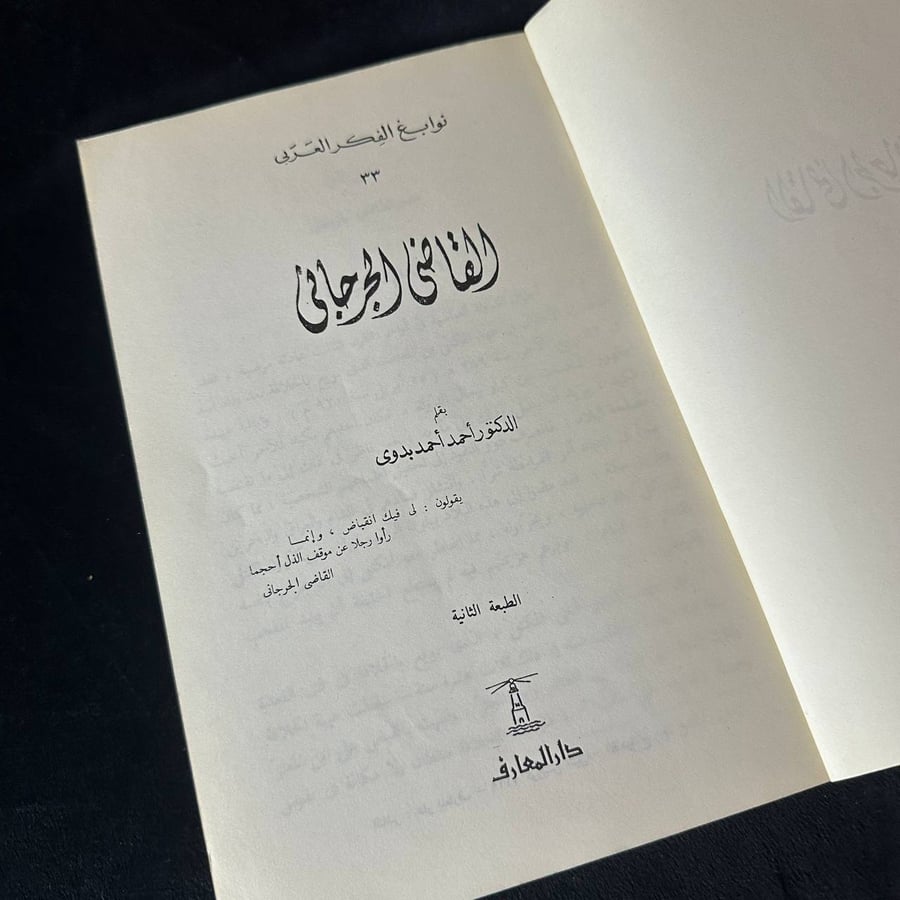 نوابغ الفكر العربى
٣٣
القاضى الجرجانى
بقلم
الدكتور أحمد أحمد بدوى
يقولون : لى فيك انقباض ، وإنما
رأوا رجلا عن موقف الذل أحجما
القاضى الجرجانى
الطبعة الثانية
دار المعارف